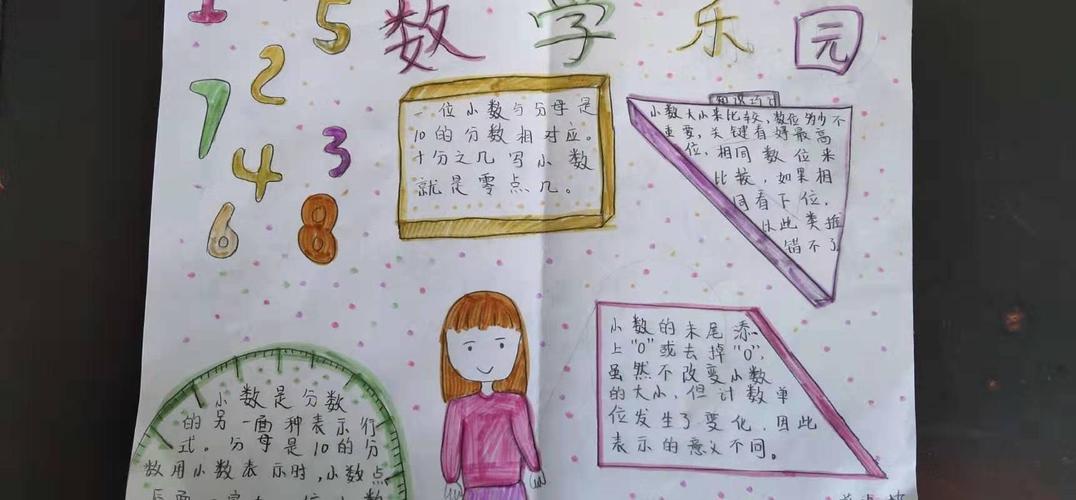 数学乐园
1
5
2
7
3
4
6
8
一位小数与分母是
10的分数相对应。
十分之几写小数
就是零点几。
小数大小来比较,数位多少不
重要,关键看好最高
位,相同数位来
比较,如果相
同看下位,
以此类推
错不了
小数的末尾添
上"0"或去掉"0",
虽然不改变小数
的大小,但计数单
位发生了变化,因此
表示的意义不同。
小数是分数
的另一种表示行
式。分母是10的分
数用小数表示时,小数点